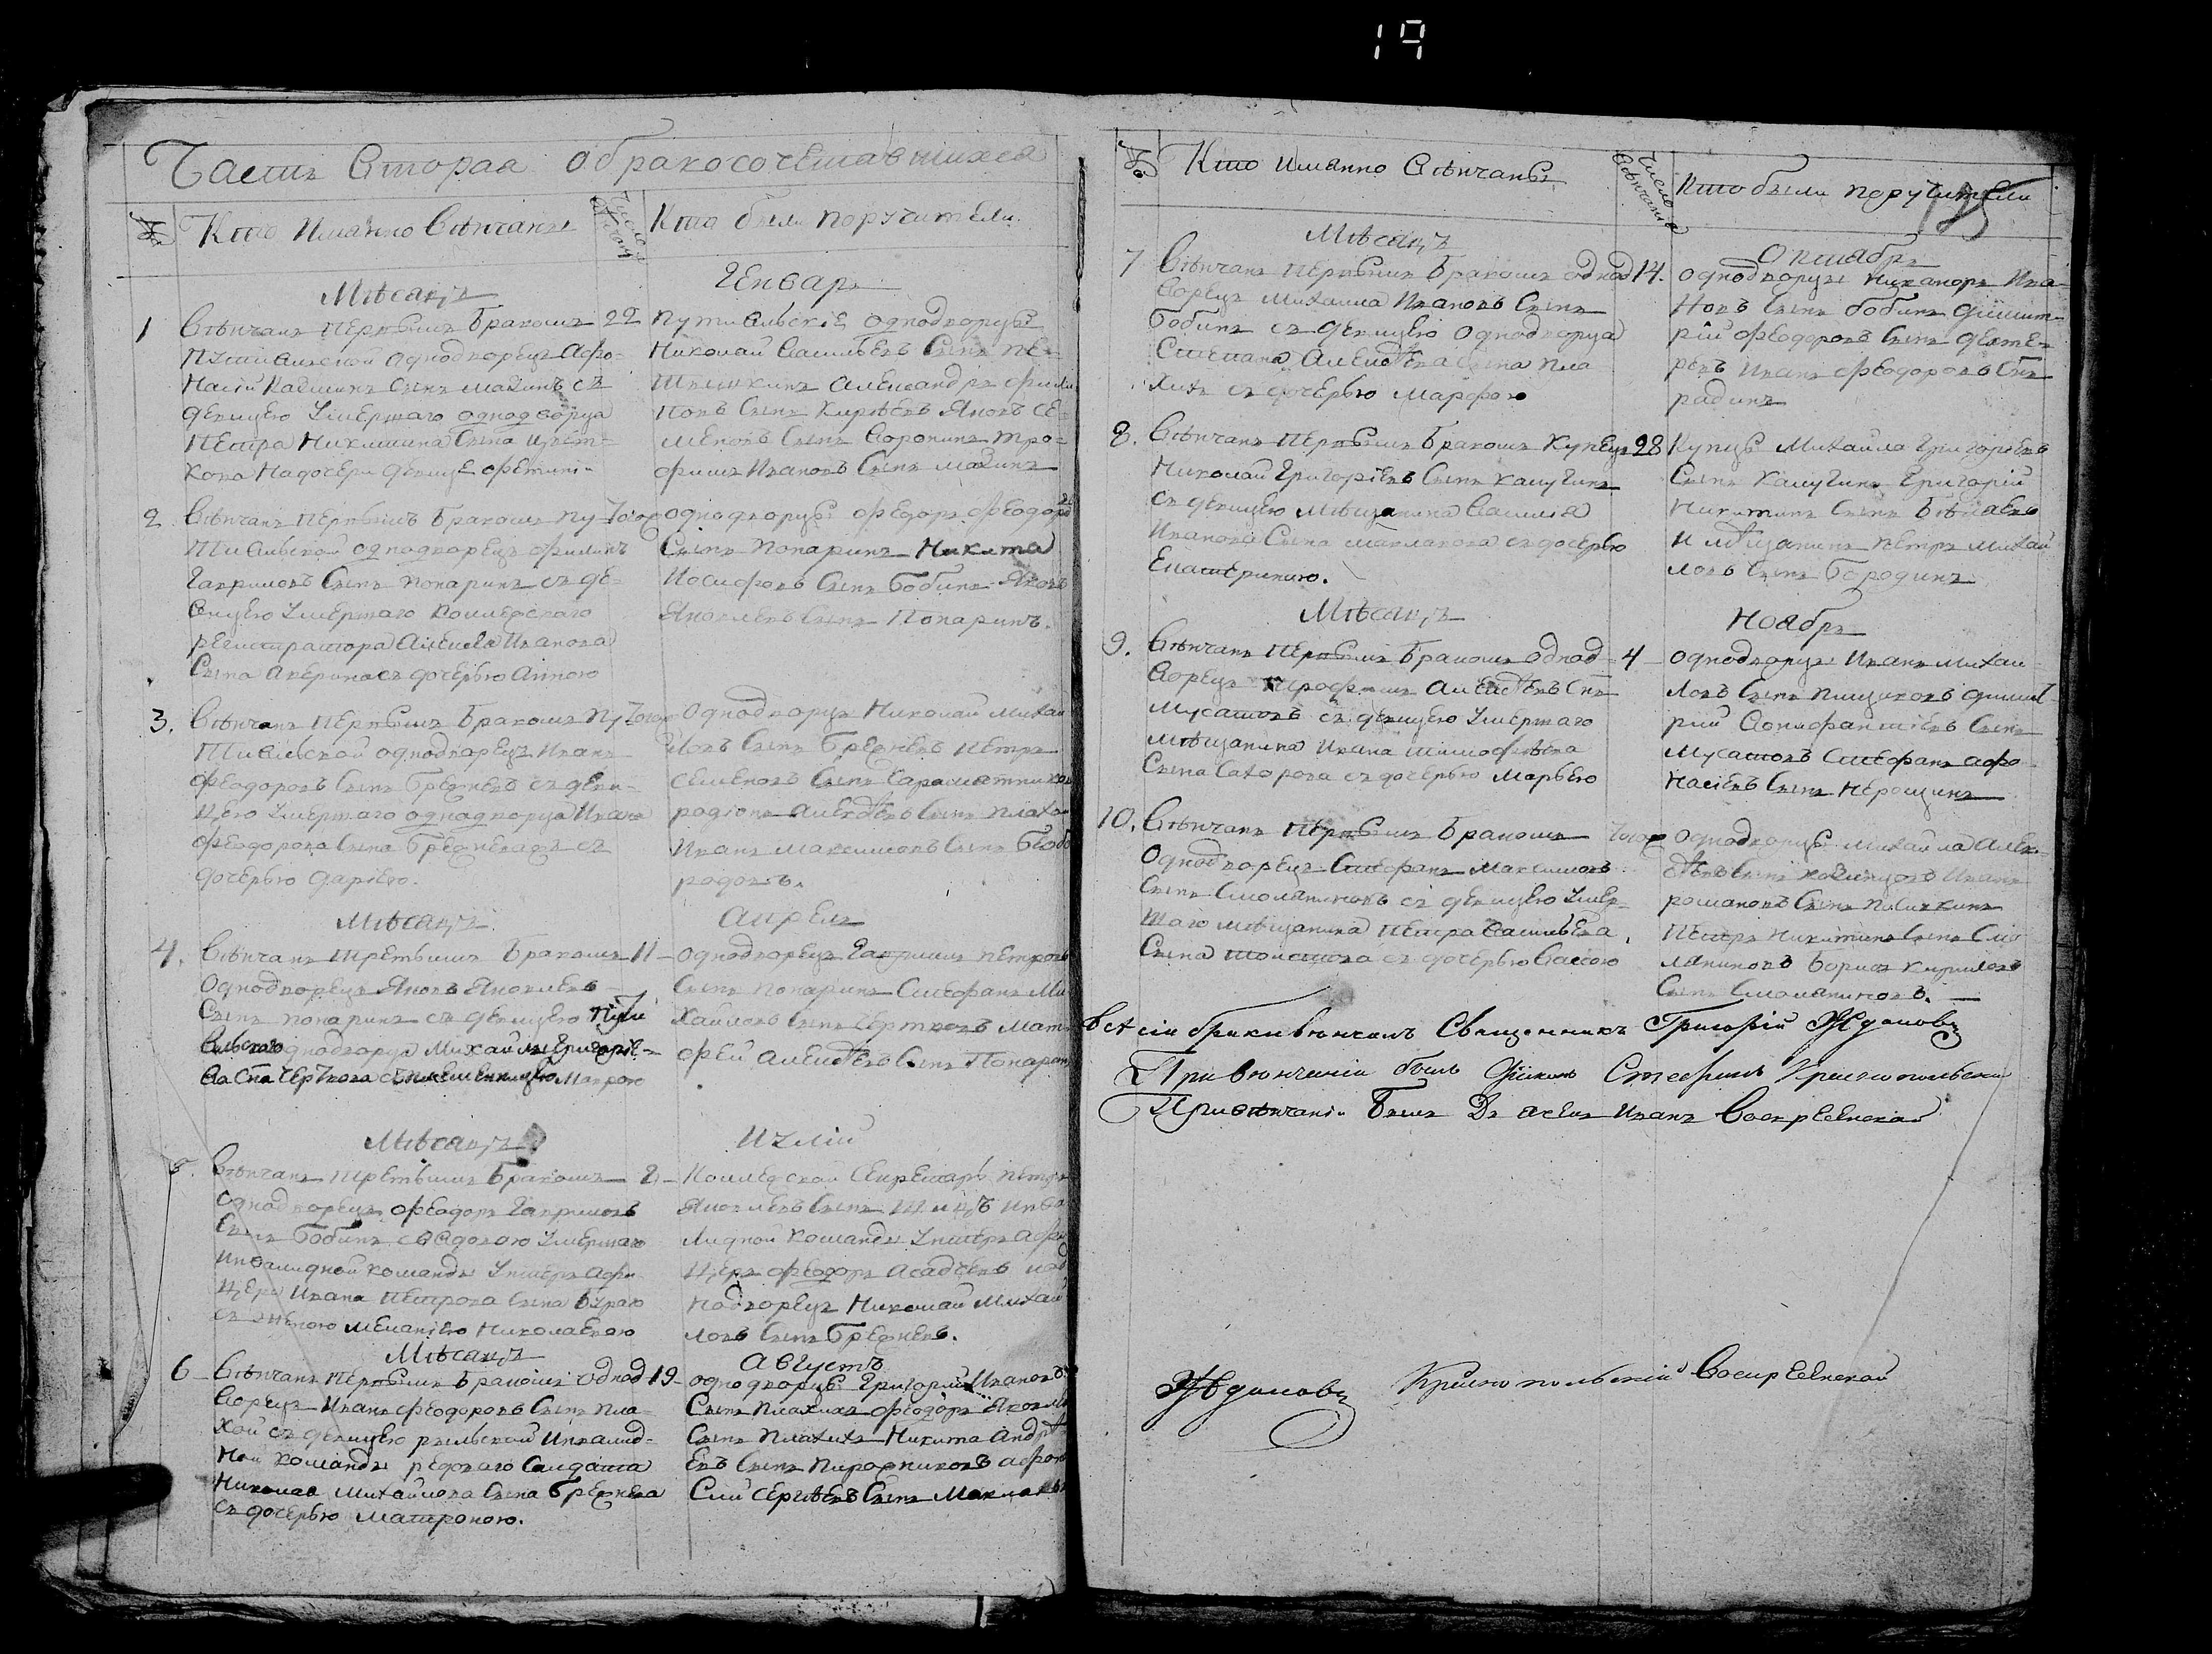 19
Часть Вторая о бракосочетавшихся
№ Кто имянно венчаны
Число венчания
Кто были поручители
Месяцъ
Генварь
1 Венчанъ первымъ бракомъ 22
однодворецъ Афо-
насий сынъ съ
девицею умершаго однодворца
Петра сына
девице
Путивльские однодворцы
Николай Васильевъ сынъ
Александръ Фили
повъ сынъ Киреевъ Яковъ Се-
меновъ сынъ Воронинъ Тро-
фимъ Ивановъ сынъ
2 Венчанъ первымъ бракомъ Пу Тогож
тивльской однодворецъ Филипъ
Гавриловъ сынъ Попаринъ съ де-
вицею умершаго коллежскаго
регистратора Алексея Иванова
сына Аверина съ дочерью Анною
однодворцы Федоръ Феодоро
сынъ Попаринъ Никита
Иосифовъ сынъ Бобинъ Яковъ
Яковлевъ сынъ Попаринъ.
3. Венчанъ первымъ бракомъ Пу Тогож
тивльской однодворецъ Иванъ
Феодоровъ сынъ Брежневъ съ деви-
цею умершаго однадворца Ивана
Феодорова сына съ
дочерью Дариею.
Однодворцы Николай Михаи
ловъ сынъ Брежневъ Петръ
Семеновъ сынъ
Родионъ Алексеевъ сынъ
Иванъ Максимовъ сынъ
Месяцъ
Апрель
4. Венчанъ третьимъ бракомъ 11
однодворецъ Яковъ Яковлевъ
сынъ Попаринъ съ девицею Пути
вльскаго однодворца Михаила Григорье-
ва сна Черткова Маврою
однодворецъ Гавриилъ Петровъ
сынъ Попаринъ Стефанъ Ми
хайловъ сынъ Чертковъ Мат
фей Алексеевъ сынъ Попарин
Месяцъ
Иулий
5. Венчанъ третьимъ бракомъ
однодворецъ Феодоръ Гавриловъ
сынъ Бобинъ съ вдовою умершаго
инвалидной команды унтеръ афи
цера Ивана Петрова сына
съ женою Меланиею Николаевою
Коллежской секретарь Петръ
Яковлевъ сынъ инва
лидной команды унтеръ афи
церъ Феодоръ од
нодворецъ Николай Михаи
ловъ сынъ Брежневъ.
Месяцъ
Августъ
6 Венчанъ первымъ бракомъ однод 19
ворецъ Иванъ Феодоровъ сынъ Пла-
хой съ девицею рыльской инвалид-
ной команды редоваго салдата
Николая Михайлова сына Брежнева
съ дочерью Матроною.
однодворцы Григорий Ивановъ
сынъ Плахихъ Феодоръ Яковле
сынъ Плахихъ Никита Андре
евъ сынъ Пирожниковъ Афона
сий Сергеевъ сынъ
№ Кто имянно венчаны
Число венчания
Кто были поручители
Месяцъ
Октябрь
7 Венчанъ первымъ бракомъ однод 14.
ворецъ Михаила Ивановъ сынъ
Бобинъ съ девицею однодворца
Степана Алексеева сына Пла
хихъ съ дочерью Марфою
однодворцы Никаноръ Ива
новъ сынъ Бобинъ Димит-
рий Феодоровъ сынъ
Иванъ Феодоровъ сынъ
8. Венчанъ первымъ бракомъ купецъ 28
Николай Григориевъ сынъ Калугинъ
съ девицею мещанина Василия
Иванова сына Маклакова съ дочерью
Екатериною.
Купцы Михайла Григориевъ
сынъ Калугинъ Григорий
Никитинъ сынъ Беляевъ
и мещанинъ Петръ Михай
ловъ сынъ Бородинъ
Месяцъ
Ноябрь
9. Венчанъ первымъ бракомъ однод 4
ворецъ Трофимъ Алексеевъ снъ
Мусатовъ съ девицею умершаго
мещанина Ивана Тимофеева
сына Сахорова съ дочерью Марьею
однодворцы Иванъ Михаи
ловъ сынъ Димит
рий Вонифантиевъ сынъ
Мусатовъ Стефанъ Афо
насиевъ сынъ
10. Венчанъ первымъ бракомъ Тогож
однодворецъ Стефанъ Максимовъ
сынъ Смолениновъ съ девицею умер-
шаго мещанина Петра Васильева
сына съ дочерью Вассою
однодворцы Михайла Алек-
сеевъ сынъ Иванъ
Романовъ сынъ
Петръ Никитинъ сынъ Смо
ляниновъ Борисъ Кириловъ
сынъ Смоляниновъ.
Все сии браки венчалъ Священникъ Григорий Ждановъ
При венчании былъ Диаконъ Стефанъ Краснопольский
При венчании былъ Иванъ Воскресенской
Ждановъ Краснопольский Воскресенской